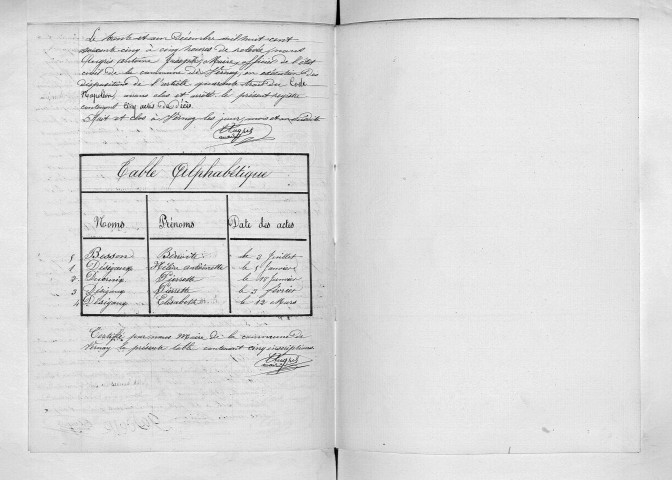 Le trente et un Décembre mil huit cent
soixante cinq à cinq heures de relevée, nous
Augros Antoine Joseph, Maire, officier de l'état
civil de la commune de Vernay en exécution des
dispositions de l'article quarante trois du Code
Napoléon, avons clos et arrêté le présent registre
contenant cinq actes de décès.
Fait et clos à Vernay les jour, mois et an susdits
Augros
Table Alphabétique
Noms Prénoms Date des actes
5 Busson Benoite le 2 Juillet
1 Désigaux antoinette le 5 Janvier
2 Pierrette le Janvier
3 Désigaux Pierrette le 3 février
4 Désigaux Elisabeth le 12 Mars
Certifié par nous Maire de la commune de
Vernay la présente table contenant cinq inscriptions.
Augros